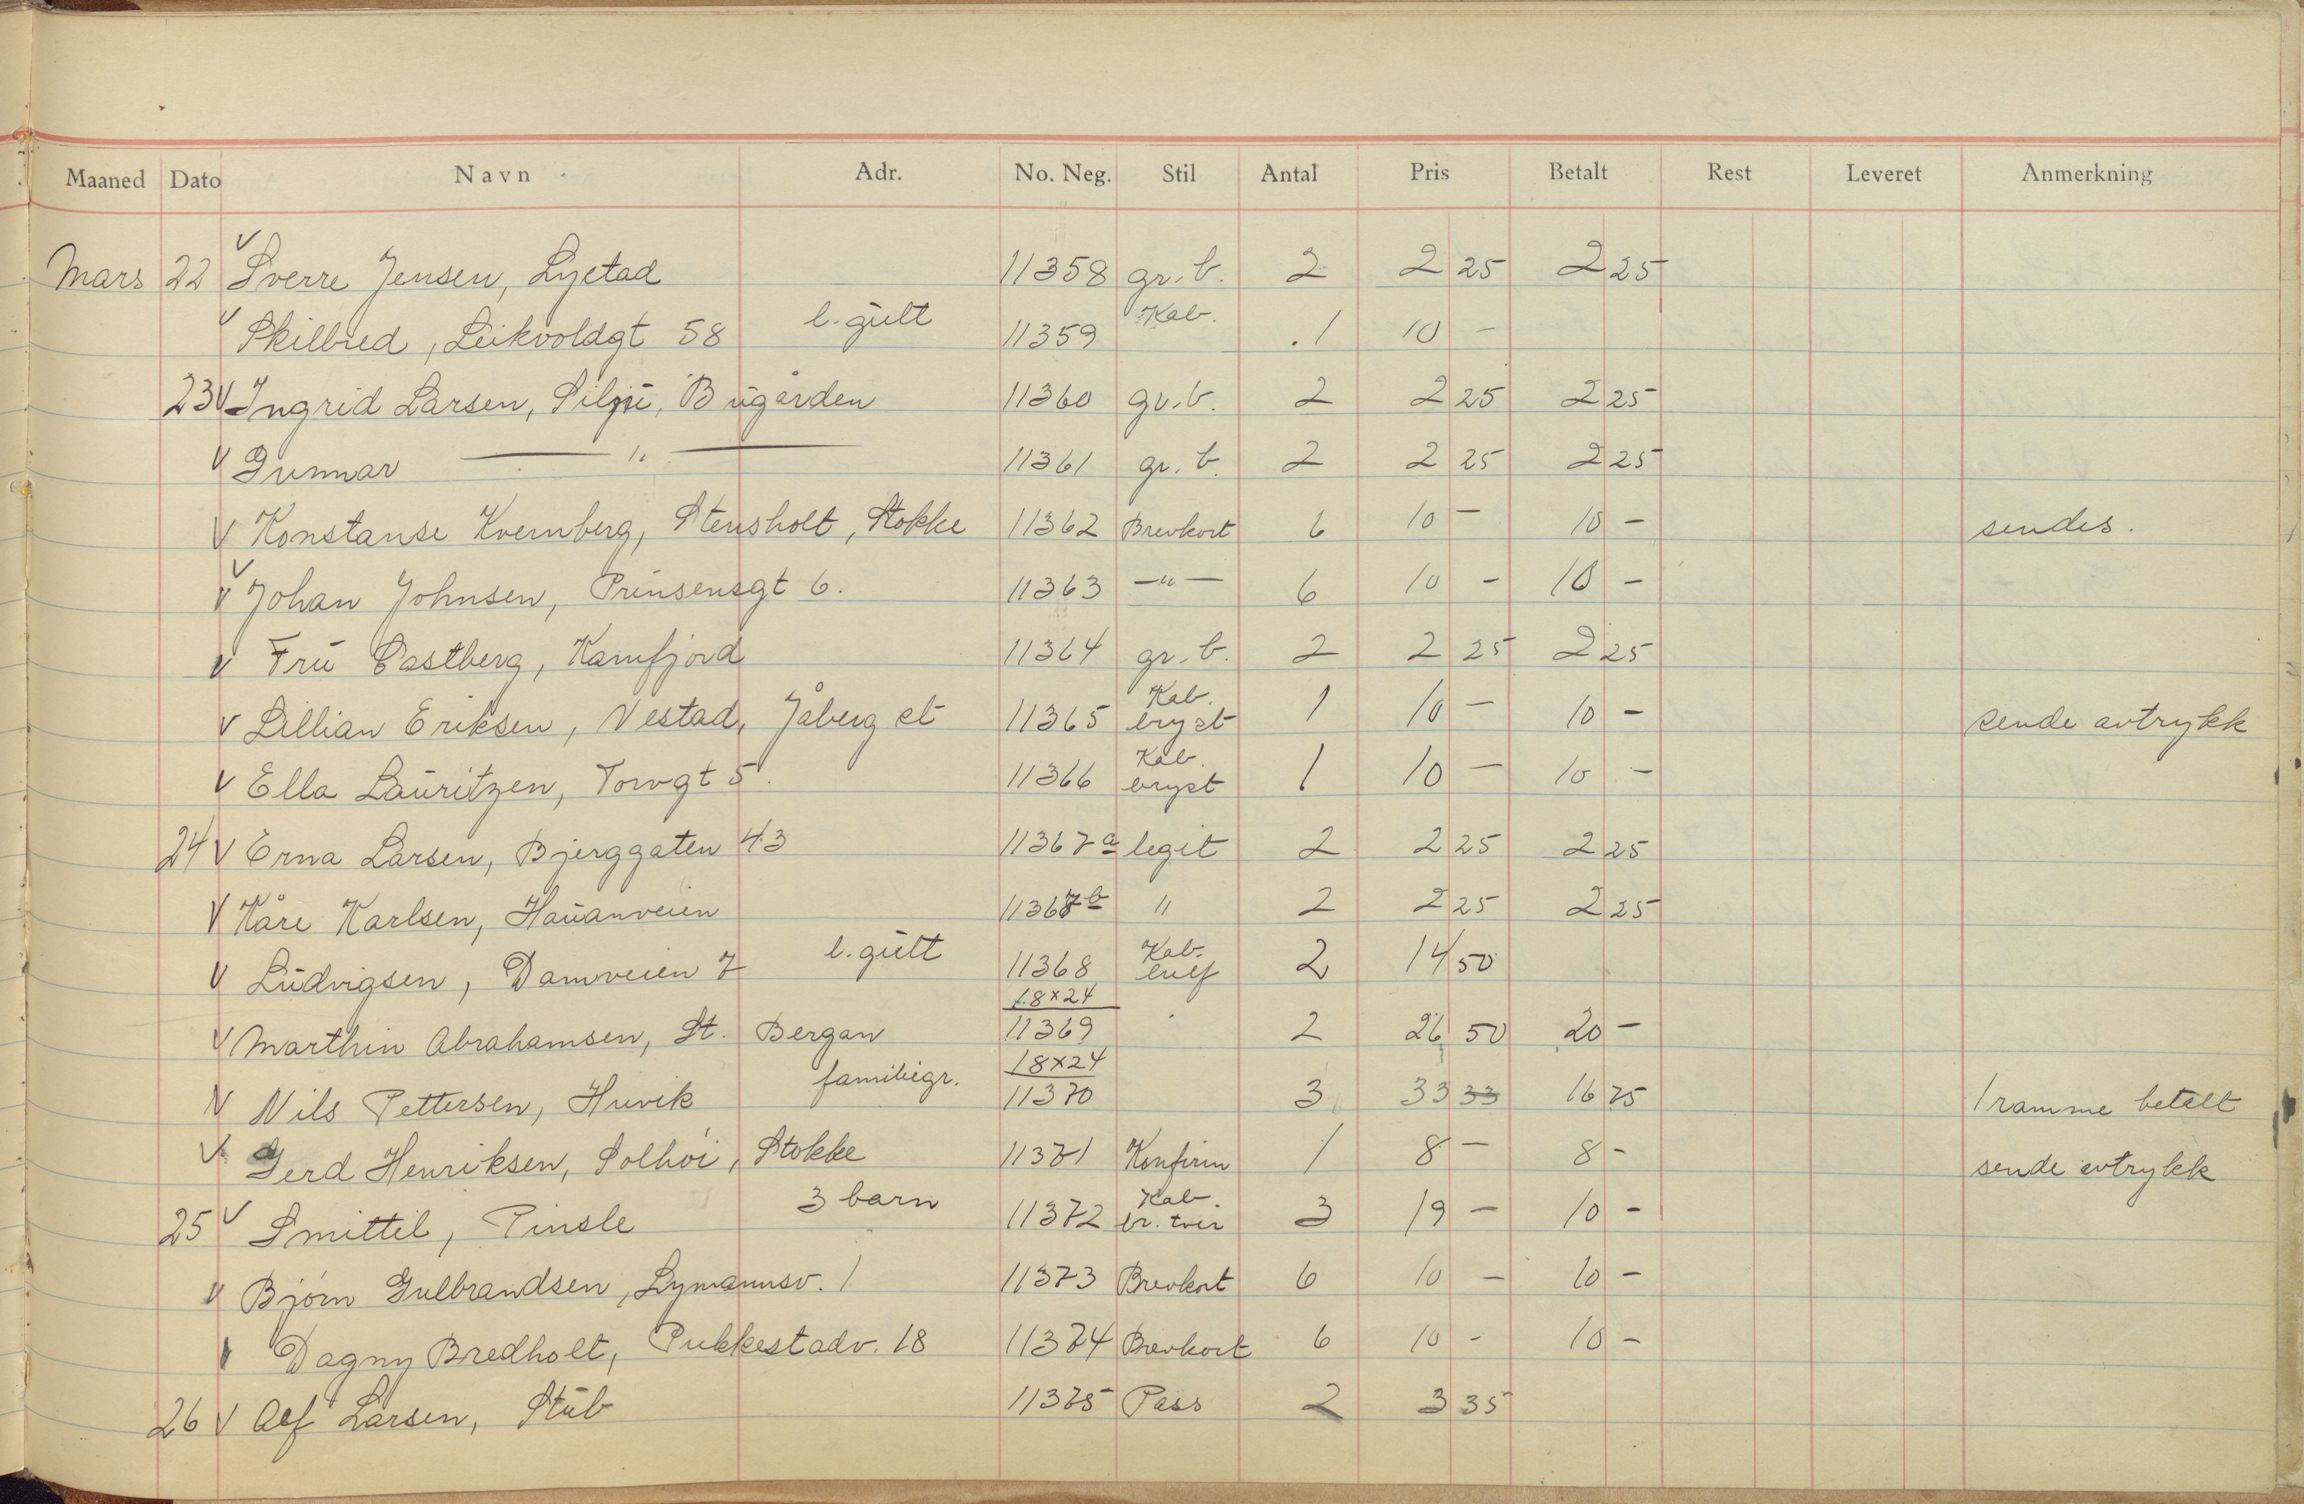 Maaned Dato Navn Adr. No. Neg. Stil Antal Pris Betalt Rest Leveret Anmerkning
Mars 22 V Sverre Jensen, Lystad 11358 gr. b. 2 2 25 2 25
V Skilbred, Leikvoldgt 58 l. gutt 11359 Kab. 1 10 –
23 V Ingrid Larsen, Bugården 11360 gr. b. 2 2 25 2 25
V Gunnar — " — 11361 gr. b. 2 2 25 2 25
V Konstanse Kvernberg, Stensholt, Stokke 11362 Brevkort 6 10 – 10 – sendes.
V Johan Johnsen, Prinsensgt 6. 11363 – " – 6 10 – 10 –
V Fru Castberg, Kamfjord 11364 gr. b. 2 2 25 2 25
V Lillian Eriksen, Vestad, Jåberg st 11365 Kab. bryst 1 10 – 10 – sende avtrykk
V Ella Lauritzen, Torvgt 5. 11366 Kab. bryst 1 10 – 10 –
24 V Erna Larsen, Bjerggaten 43 11367 a legit 2 2 25 2 25
V Kåre Karlsen, Hauanveien 11367 b " 2 2 25 2 25
V Ludvigsen, Damveien 7 l. gutt 11368 Kab. 2 14 50
18×24
V Marthin Abrahamsen, St. Bergan 11369 2 26 50 20 –
18×24
V Nils Pettersen, Huvik familiegr. 11370 3 33 33 16 75 1 ramme betalt
V Gerd Henriksen, Solhøi, Stokke 11371 Konfirm 1 8 – 8 – sende avtrykk
25 V Smittil, Pinsle 3 barn 11372 Kab. br. tvir 3 19 – 10 –
V Bjørn Gulbrandsen, Lymannsv. 1 11373 Brevkort 6 10 – 10 –
V Dagny Bredholt, Pukkestadv. 18 11374 Brevkort 6 10 – 10 –
26 V Alf Larsen, Stub 11375 Pass 2 3 35